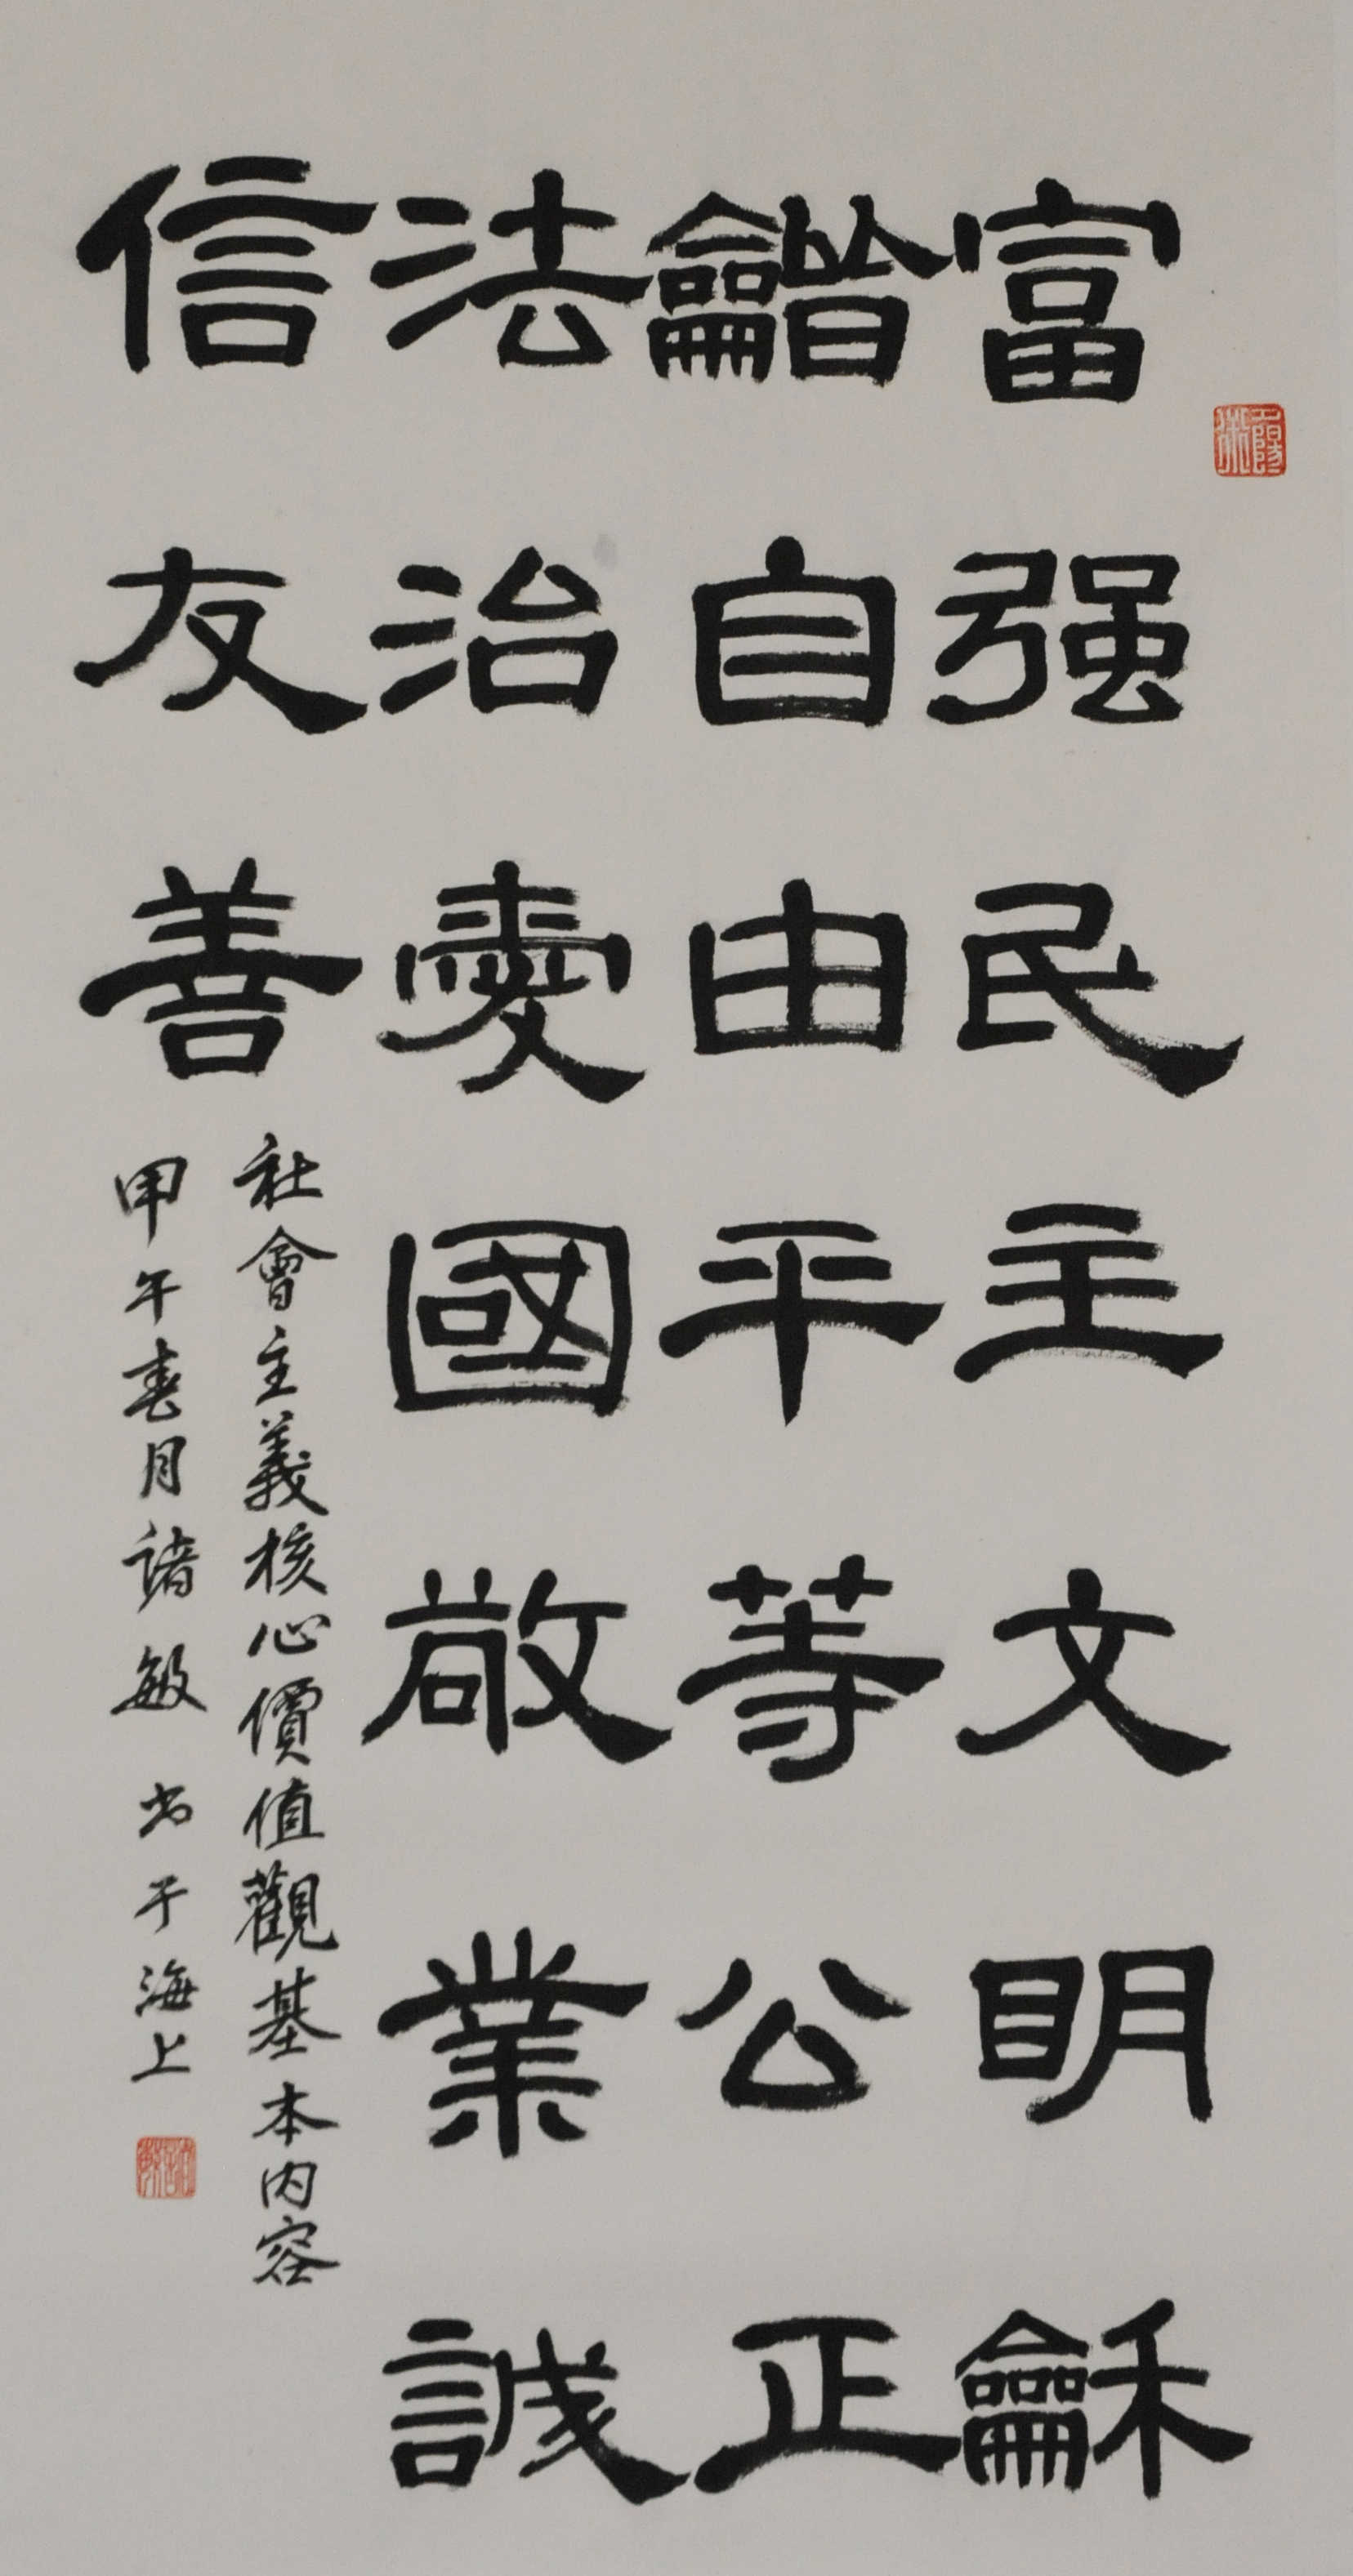 富强民主文明龢
龤自由平等公正
法治愛國敬業誠
信友善
社會主義核心價值觀基本内容
甲午春月諸敏书于海上